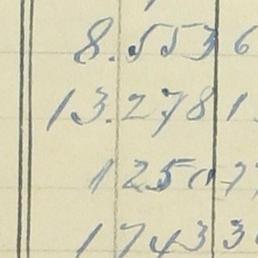 8.553 6
13.278 1
125077
17433